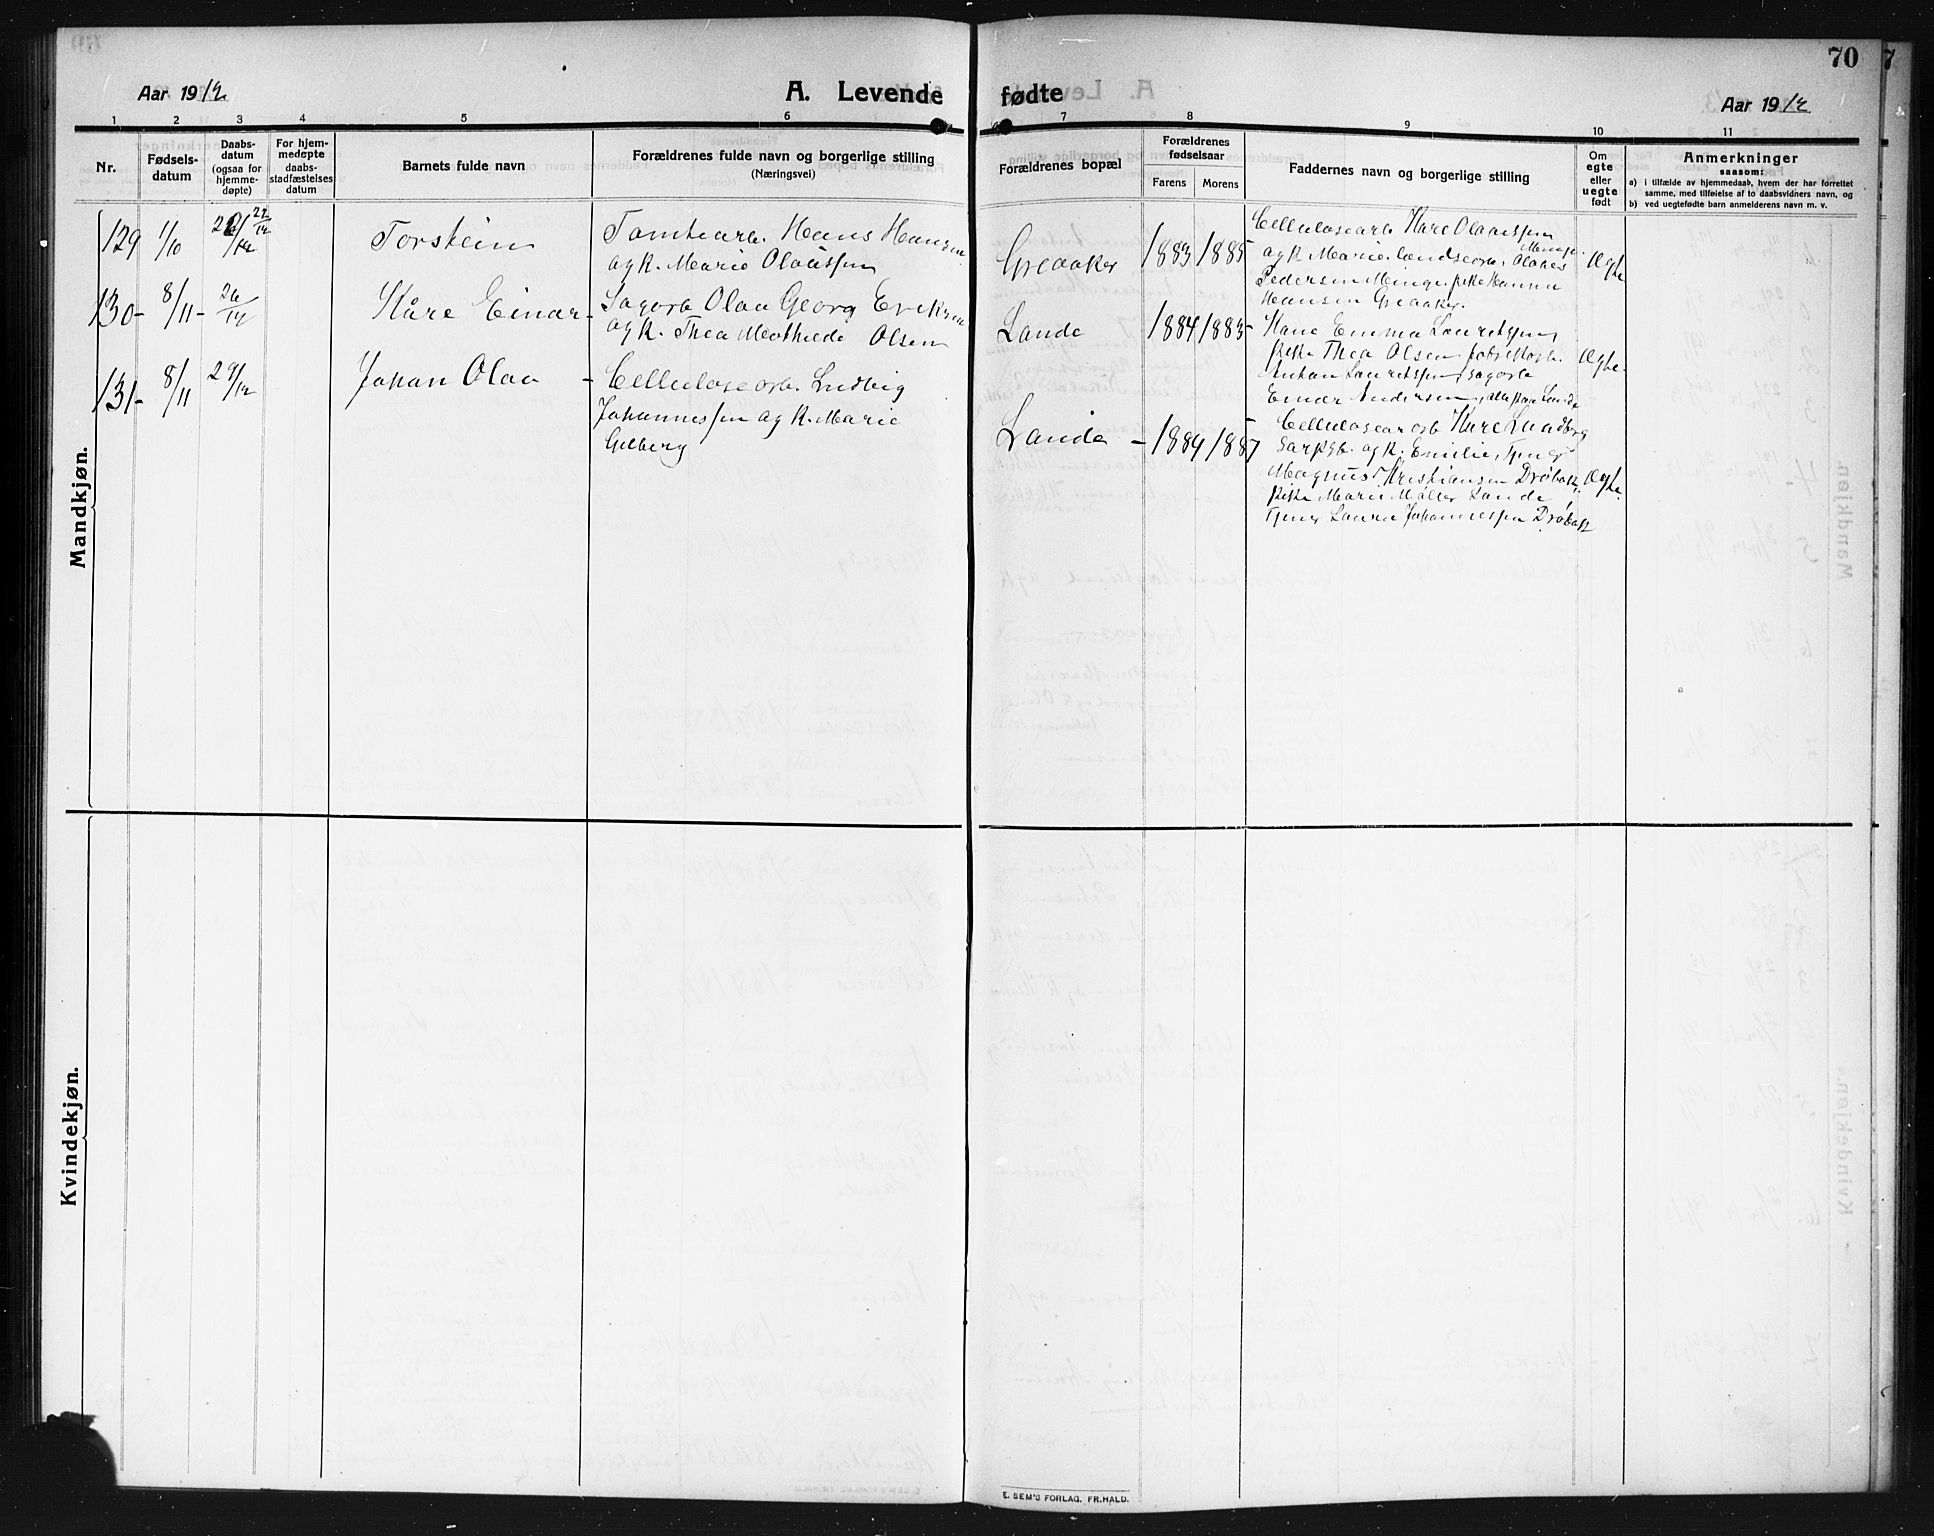 70
Aar 1912
A. Levende fødte
Aar 1912
1 2 3 4 5 6 7 8 9 10 11
Nr.
Fødselsdatum
Daabsdatum (ogsaa for hjemmedøpte)
For hjemmedøpte daabsstadfæstelses datum
Barnets fulde navn
Forældrenes fulde navn og borgerlige stilling
(Næringsvei)
Forældrenes bopæl
Forældrenes fødselsaar
Farens Morens
Faddernes navn og borgerlige stilling
Om egte eller uegte født
Anmerkninger
saasom:
a) i tilfælde av hjemmedaab, hvem der har forrettet
samme, med tilføielse af to daabsvidners navn, og
b) ved uegtefødte barn anmelderens navn m. v.
Mandkjøn.
129 1/10 Torstein
Tomtearb. Hans Hansen
og k. Marie Olaussen
Greaaker 1883 1885
Cellulosearb Kare Olaussen
og k. Marie, landsearb. Olaves
Pedersen Minge, pike Hanna
Hansen Greaaker.
Ægte
130 8/11 26/12 Kåre Einar
Sagarb Olaa Georg Eriksen
og k. Thea Mathilde Olsen
Lande 1884 1883
Kone Emma Lauritssen
pike Thea Olsen, fabrikarb.
Anton Lauritssen, sagarb
Einar Andersen, alle paa Lande
Ægte.
131 8/11 29/12 Johan Olaa
Cellulosearb. Ludvig
Johannessen og k. Marie
Gulberg
Lande 1884 1887
Cellulosearb Kare Lundberg
Sarpsb. og k. Emilie, Tjener
Magnus Kristiansen Drøbak,
pike Marie Møller Lande
Tjener Laura Johannessen Drøbak
Ægte.
Kvindekjøn.
E. SEM'S FORLAG, FR.HALD.